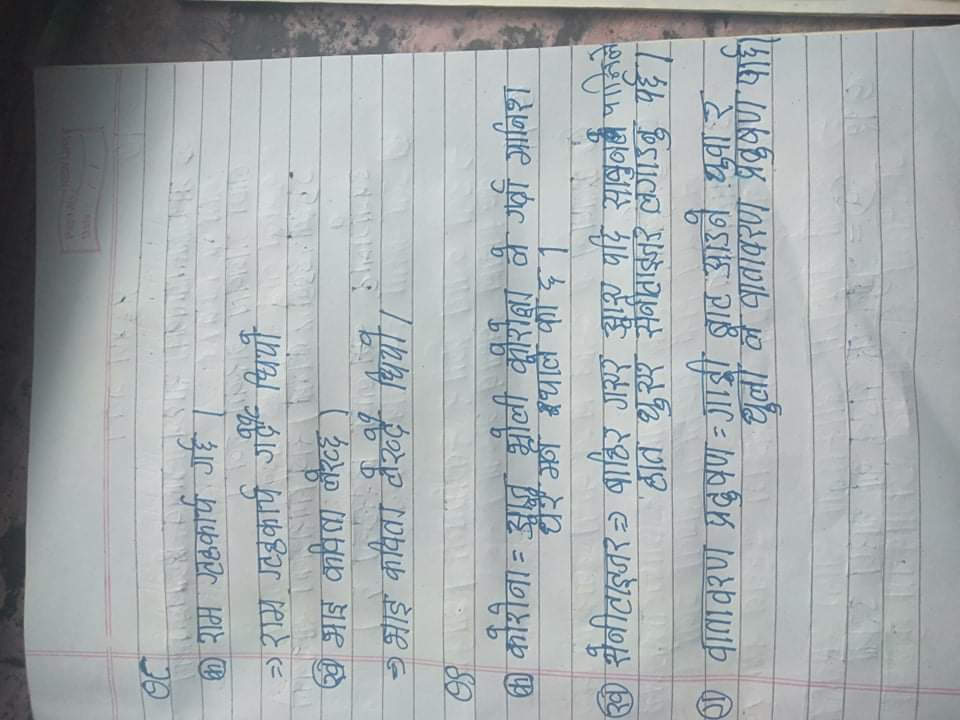 १८
क राम गृहकार्य गर्छ ।
⇒ राम गृहकार्य गर्दै थियो
ख भाइ कविता लेख्छ ।
⇒ भाइ कविता लेख्दै थियो ।
१९
क कोरोना = भोली कोरोना ले गर्दा मानिश
घर मन का छ ।
ख सेनीटाइजर ⇒ बाहिर गएर आए पदि पहिले
हात धुएर सेनीटाइजर लगाउनु पर्छ ।
ग वातावरण प्रदुषण = गाडी बाट आउने धुवा र
धुलो ले वातावरण प्रदुषण गर्छ।